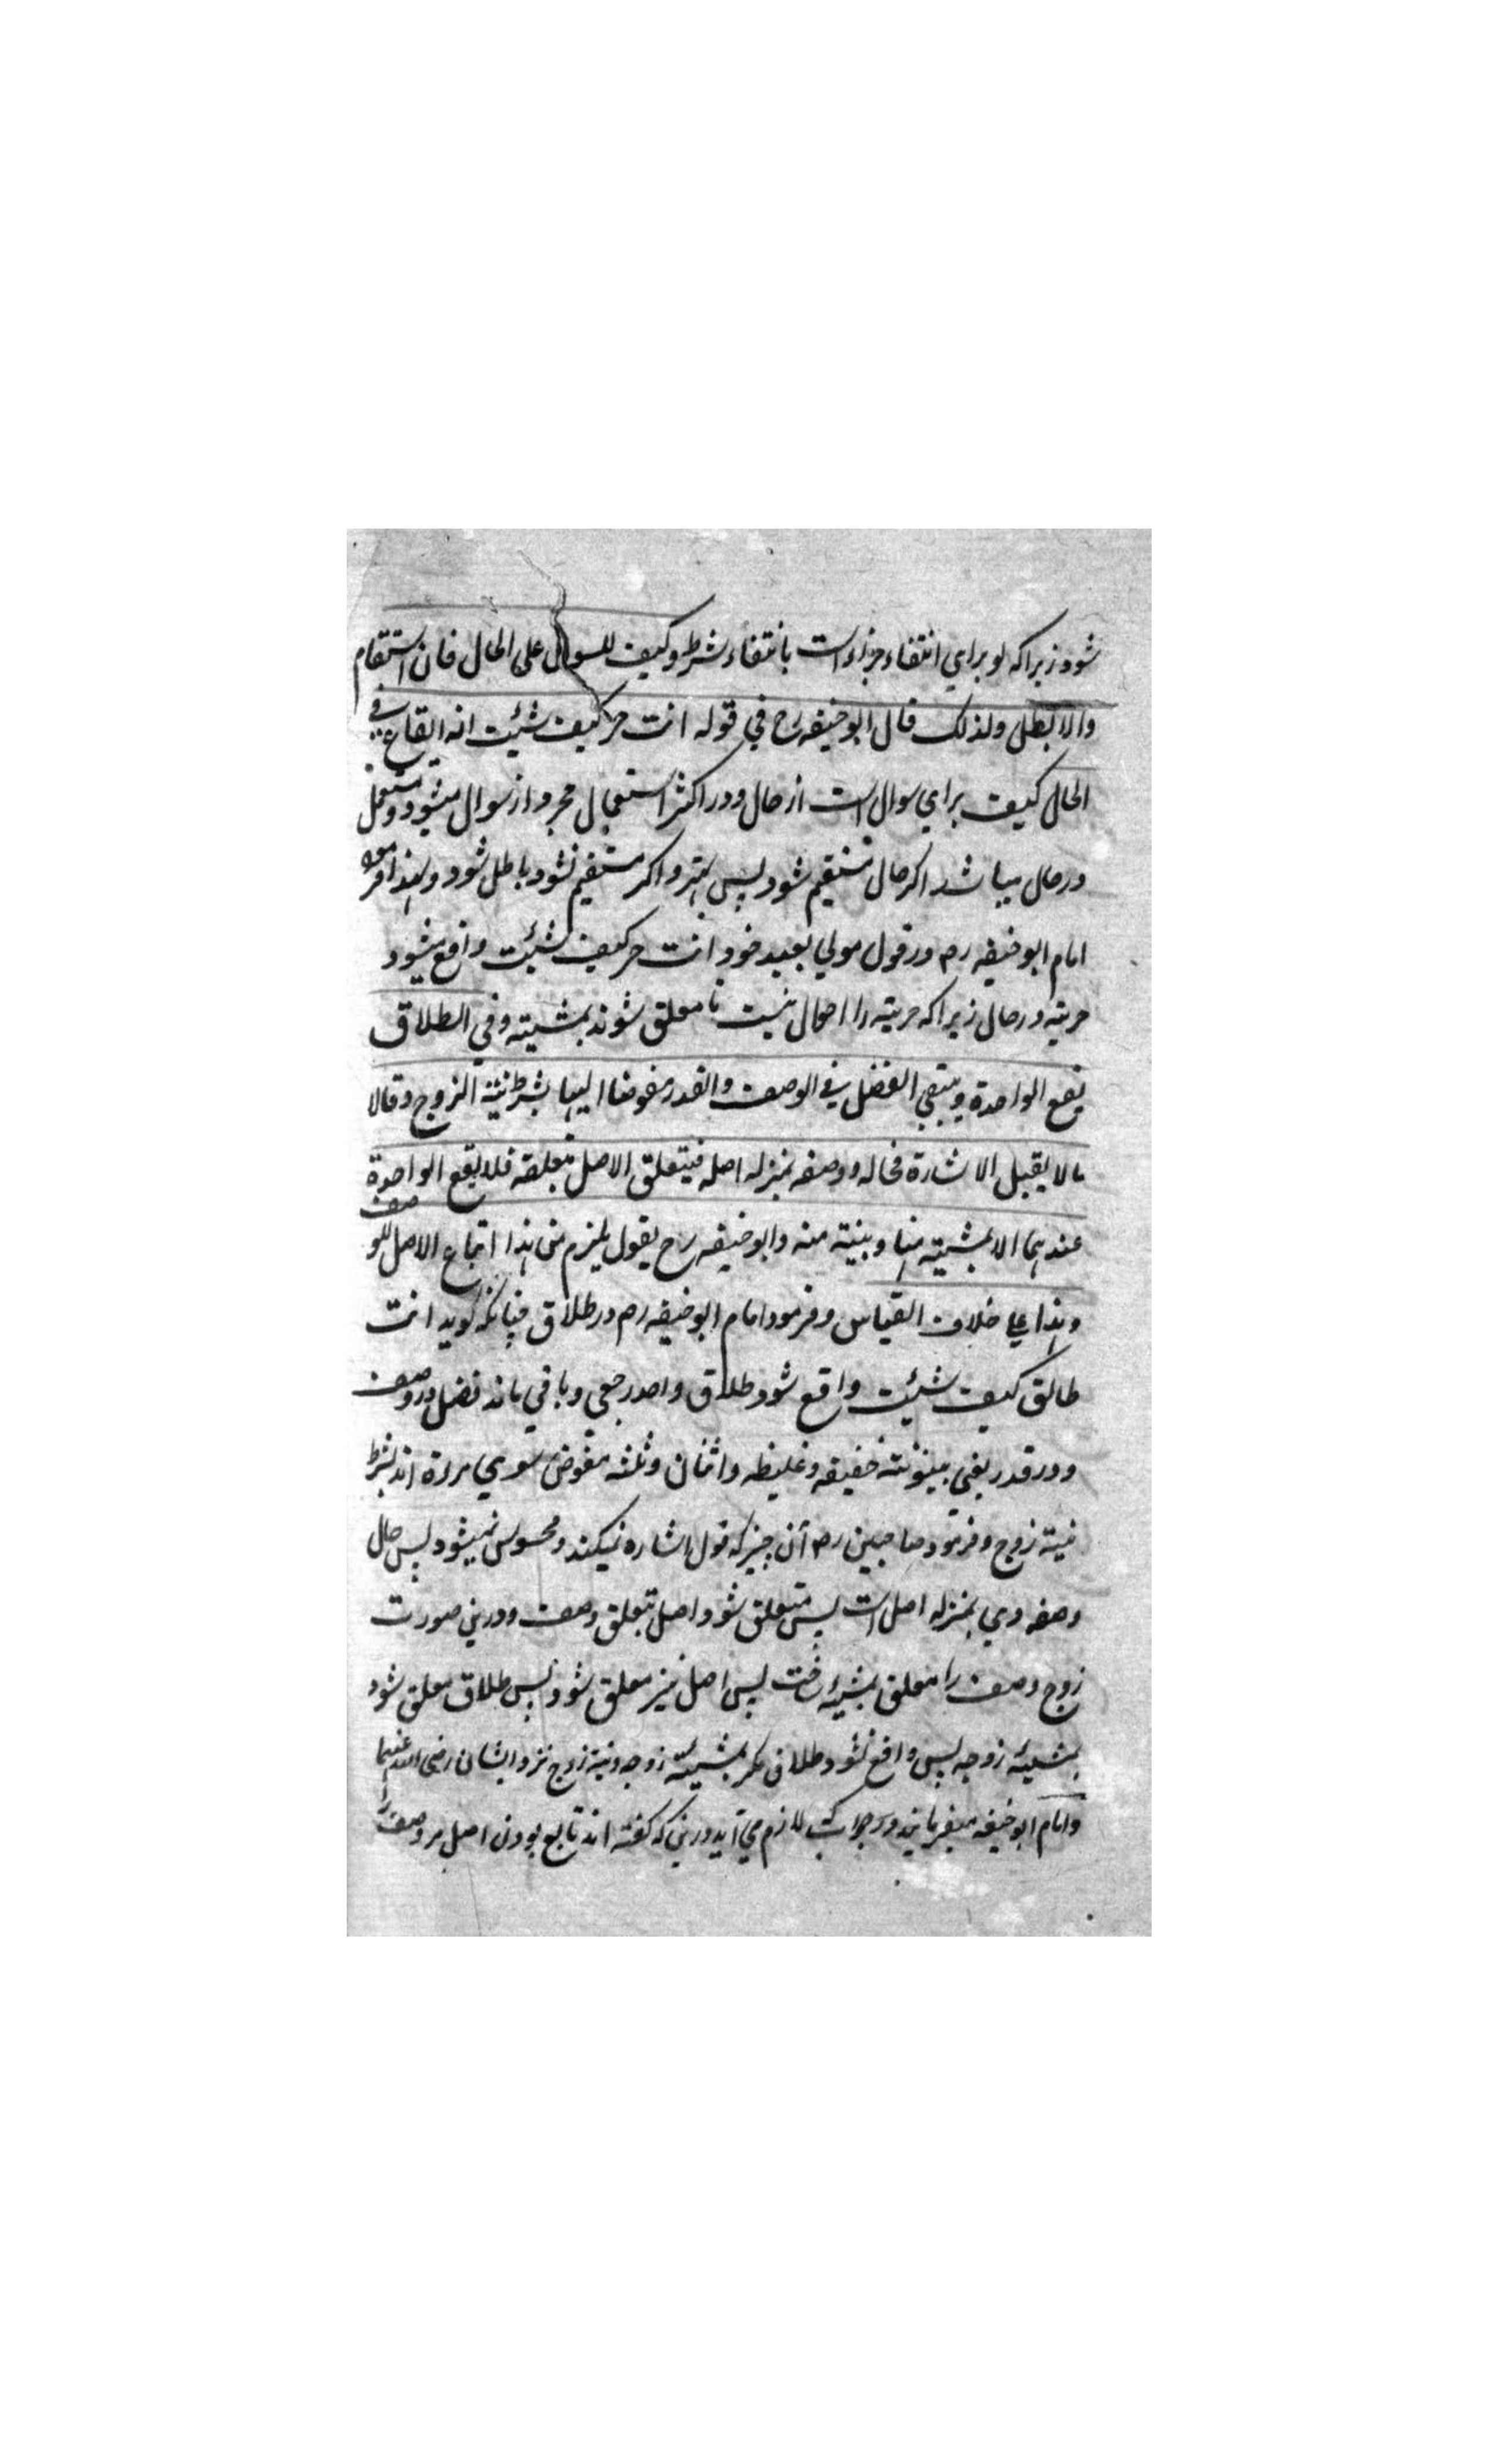 شود زیراکه لو برای انتفاء جزاءاست بانتفاء شرط وکیف للسوال علی الحال فان استقام
والا بطل ولذلک قال ابو حنیفه رح فی قوله انت حر کیف شئت انه ایقاع فی
الحال کیف برای سوال است از حال ودر اکثر استعمال مجرد از سوال میشود ومستعمل
در حال میباشد اکر حال مستقیم شود پس بهتر واکر مستقیم نشود باطل شود ولهذا فرموده
امام ابو حنیفه رح در قول مولی بعبد خود انت حر کیف شئت واقع میشود
حریته در حال زیراکه حریته را احوال نیست تا معلق شوند بمشیته وفی الطلاق
یقع الواحدة ویبقی الفضل فی الوصف والقدر مفوضا الیها بشرط نیة الزوج وقالا
مالا یقبل الاشارة فحاله ووصفه بمنزله اصله فیتعلق الاصل بتعلقه فلا یقع الواحدة
عندهما الا بمشیته منها وبنیته منه وابو حنیفه رح یقول یلزم من هذا اتباع الاصل للوصف
وهذا علی خلاف القیاس وفرمود امام ابو حنیفه رح در طلاق چنانکه کوید انت
طالق کیف شئت واقع شود طلاق واحد رجعی وباقی ماند فضل در وصف
ودر قدر یعنی بینونته خفیفه وغلیظه واثنان وثلثه مفوض سوی مرءة اند بشرط
نیته زوج وفرمود صاحبین رح آن چیز که قول اشاره نمیکند ومحسوس نمیشود پس حال
وصفه وی بمنزله اصل است پس متعلق شود اصل بتعلق وصف ودرین صورت
زوج وصف را معلق بمشیئه ساخت پس اصل نیز معلق شود پس طلاق معلق شود
بمشیئه زوجه پس واقع نشود طلاق مکر بمشیئة زوجه ونیة زوج نزد ایشان رضی الله عنهما
وامام ابو حنیفه میفرمایند در جواب که لازم می آید درین که کفته اند تابع بودن اصل مر وصف را